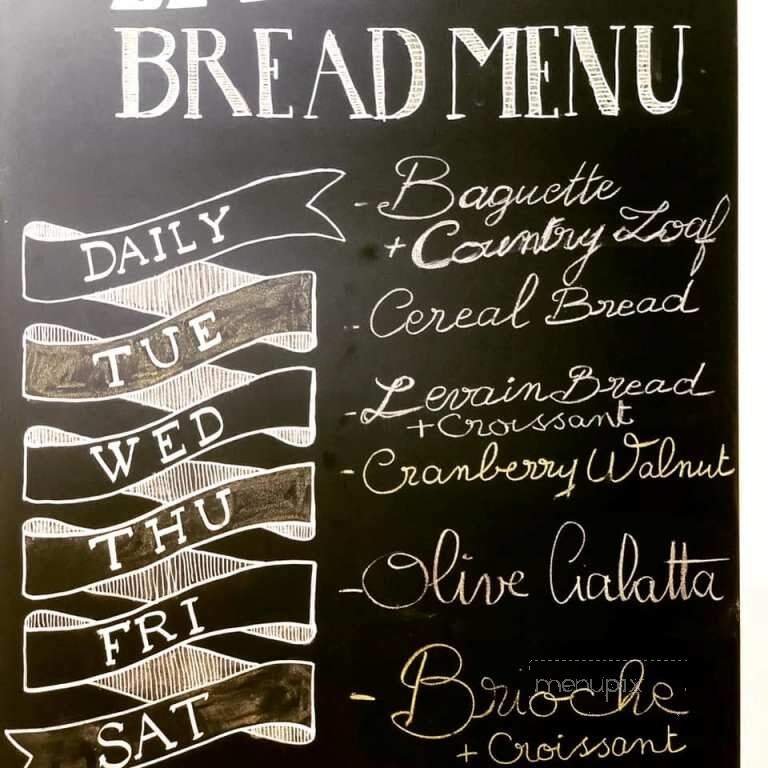 BREAD MENU
DAILY - Baguette
+ Country Loaf
TUE - Cereal Bread
WED - Levain Bread
+ Croissant
THU - Cranberry Walnut
FRI - Olive Ciabatta
SAT - Brioche
+ Croissant
menupix